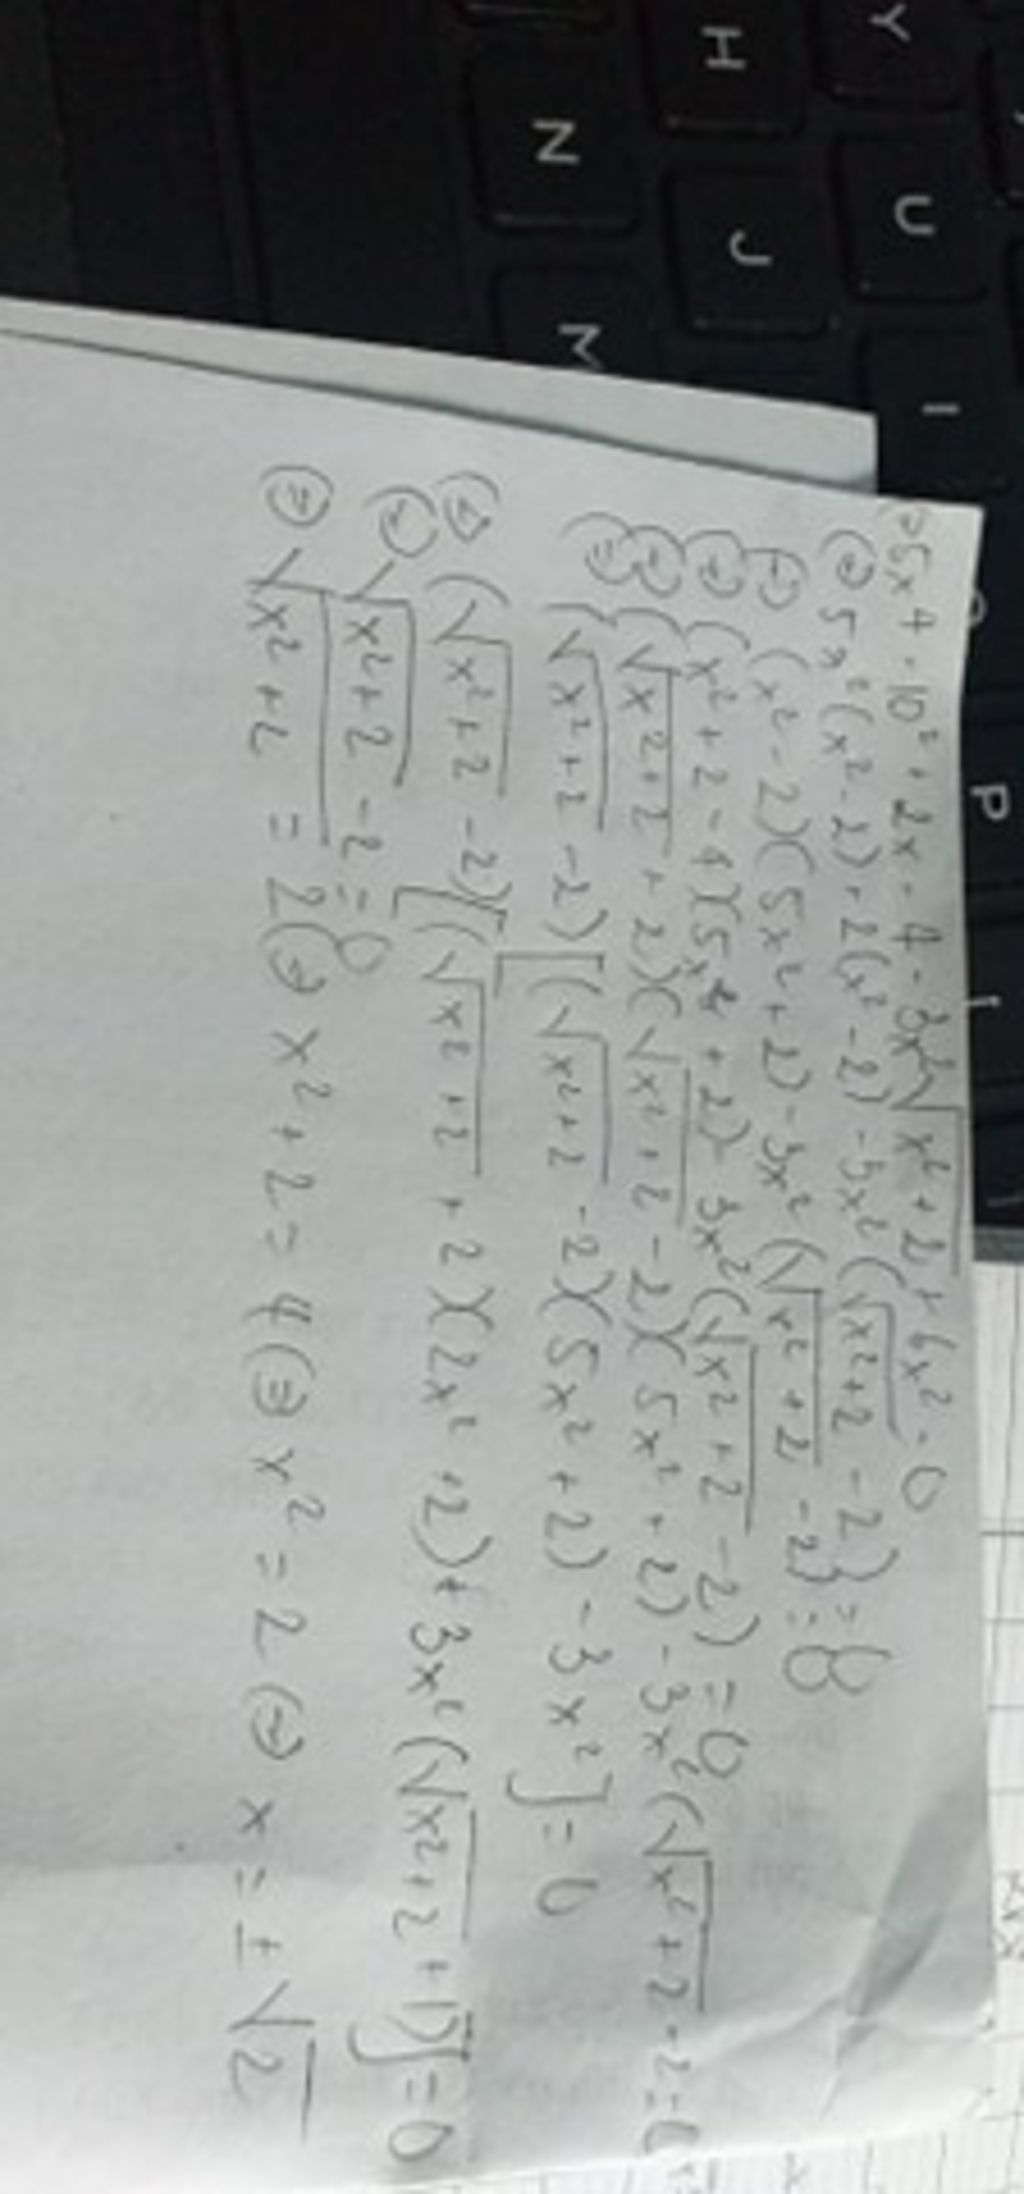 5x⁴ - 10² + 2x - 4 - 3x²√x²+2 + 6x² = 0
⇔ 5x²(x² - 2) + 2(x² - 2) - 3x²(√x²+2 - 2) = 0
⇔ (x² - 2)(5x² + 2) - 3x²(√x²+2 - 2) = 0
⇔ (x² + 2 - 4)(5x² + 2) - 3x²(√x²+2 - 2) = 0
⇔ (√x²+2 + 2)(√x²+2 - 2)(5x² + 2) - 3x²(√x²+2 - 2 = 0
⇔ (√x²+2 - 2)[(√x²+2 - 2)(5x² + 2) - 3x²] = 0
⇔ (√x²+2 - 2)[(√x²+2 + 2)(2x² + 2) + 3x²(√x²+2 + 1)] = 0
⇔ √x²+2 - 2 = 0
⇔ √x²+2 = 2 ⇔ x² + 2 = 4 ⇔ x² = 2 ⇔ x = ± √2
Y
H
U
N
J
I
M
P